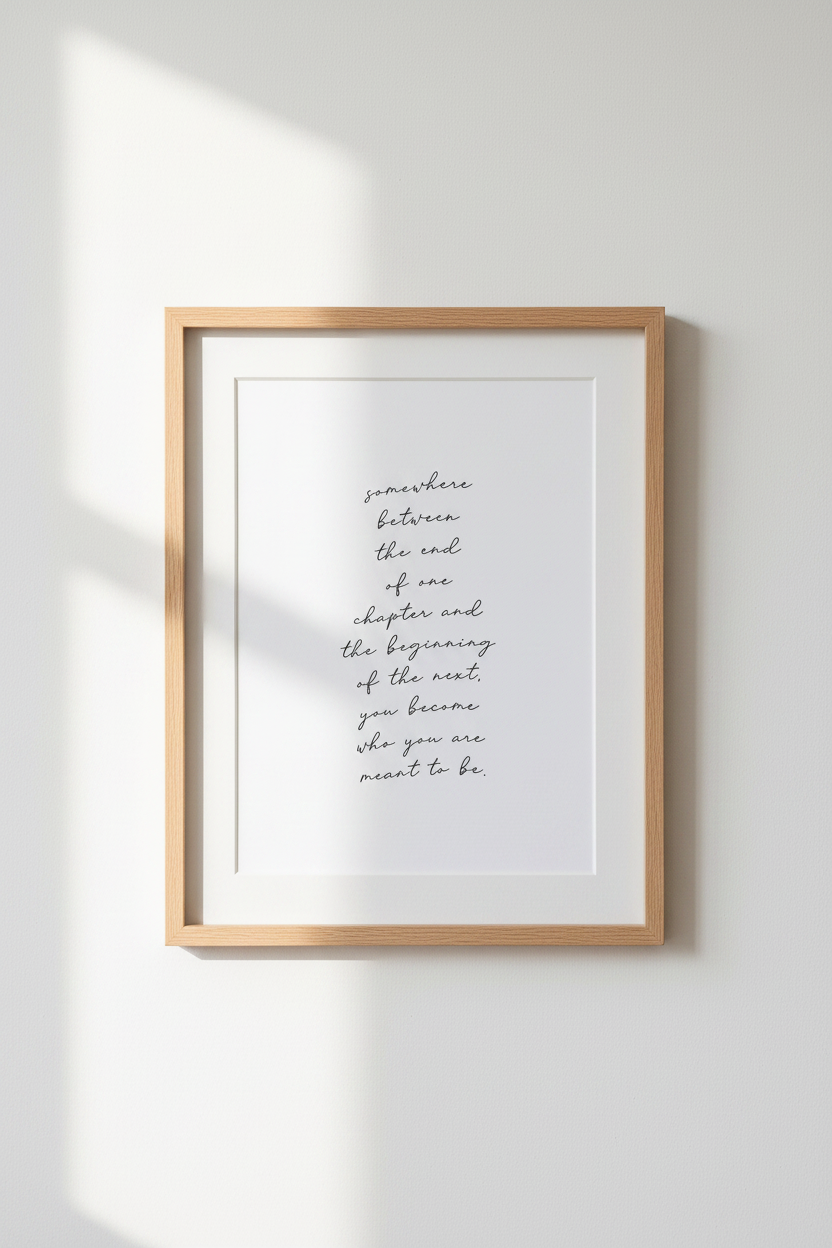 somewhere
between
the end
of one
chapter and
the beginning
of the next,
you become
who you are
meant to be.